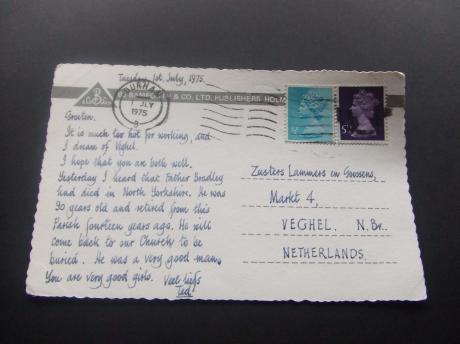 Tuesday 1st July, 1975.
DURHAM
1 JLY
1975
B
& CO. LTD. PUBLISHERS HOLM
5½
Groeten.
It is much too hot for working, and
I dream of Veghel.
I hope that you are both well.
Yesterday I heard that Father Bradley
had died in North Yorkshire. He was
90 years old and retired from this
Parish fourteen years ago. He will
come back to our Church to be
buried. He was a very good man.
You are very good girls. Veel liefs
Ted
Zusters Lammers en Goossens,
Markt 4,
VEGHEL. N.Br..
NETHERLANDS.